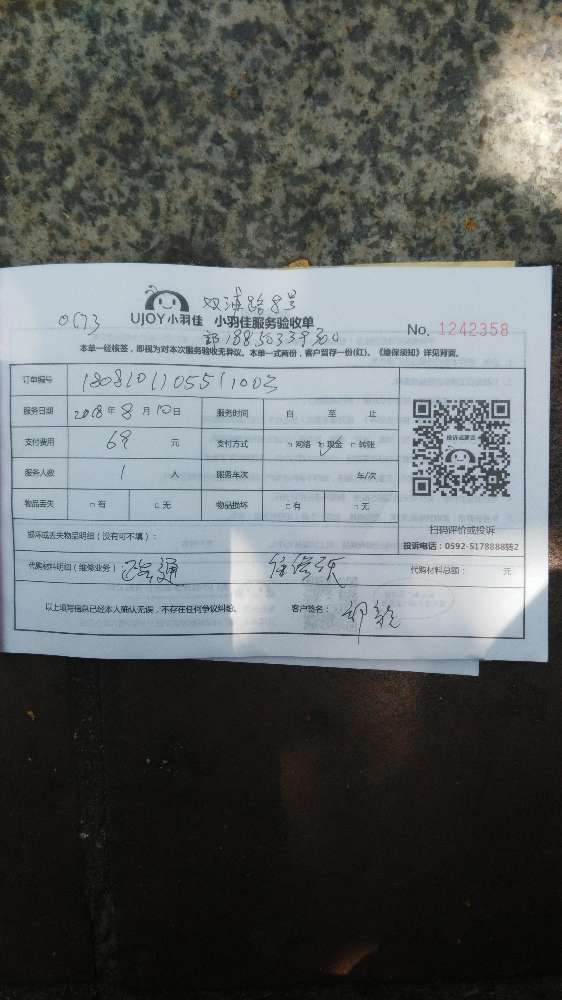 0673
8号
UJOY小羽佳 小羽佳服务验收单
No. 1242358
本单一经核签，即视为对本次服务验收无异议。本单一式两份，客户留存一份(红)。《维保须知》详见背面。
订单编号
服务日期 2018年8月10日 服务时间 自 至 止
支付费用 69 元 支付方式 □网络 ☑现金 □转账
服务人数 1 人 服务车次 车/次
物品丢失 □有 □无 物品损坏 □有 □无
投诉或建议
扫码评价或投诉
投诉电话：0592-5178888转2
损坏或丢失物品明细（没有可不填）：
代购材料明细（维修业务）： 通 代购材料总额： 元
以上填写信息已经本人确认无误，不存在任何争议纠纷。 客户签名：